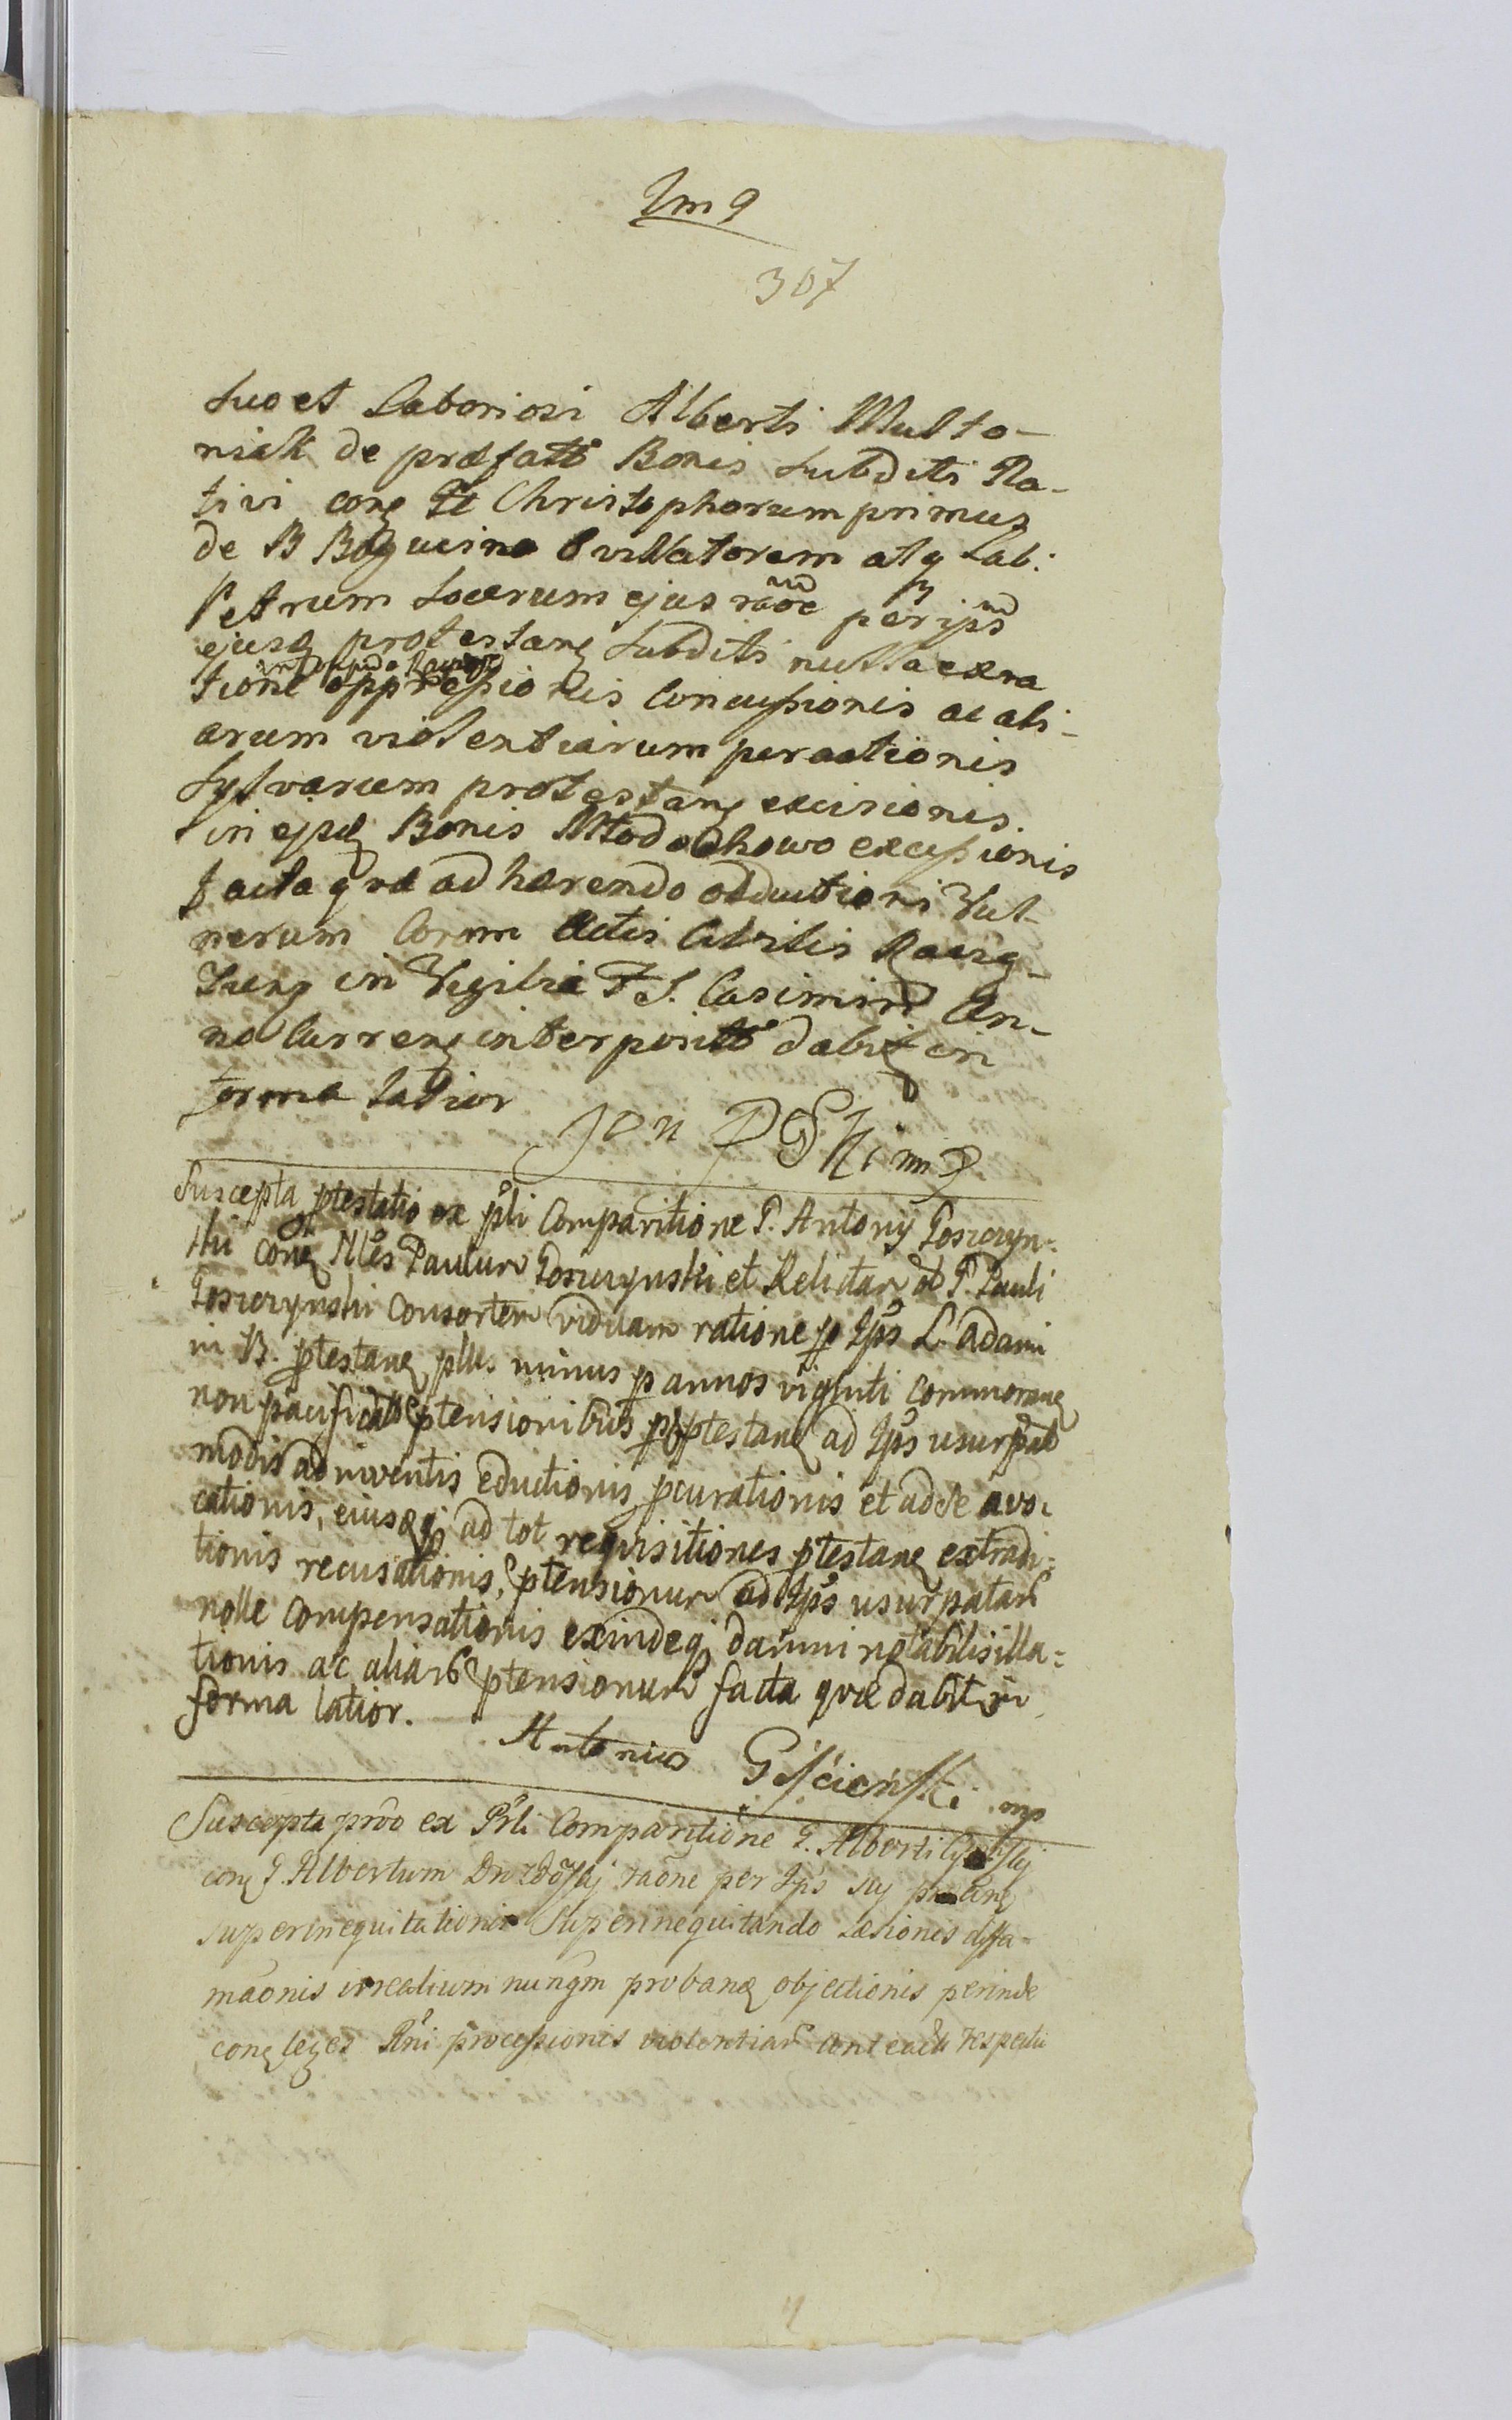 307
suo et Laboriosi Alberti Multo-
niak de præfatt Bonis Subditi Na-
tivi conq Christophorum primus
de B Bogucino Ovillatorem atq Lab:
Petrum Socerum ejus raõe per ips
ejusq protestanq Subditi nulla exra
tione oppressionis Concussionis ac ali-
arum violentiarum peractionis
Sylvarum protestanq excisionis
in ejsdq Bonis Młodochowo excessionis
facta quæ adhærendo obductioni Vul-
nerum Coram Actis Civilis
in Vigilia F S. Casimiri An-
no Currenq interpositt dabit in
forma latior
Jan
Suscepta ptestatio ex pñli Comparitione G. Antonij Gosciyn-
ski conq Nles Paulum Gosciynski et Relictam ol G. Pauli
Gosciynski Consortem viduam ratione p Ips L. Adami
in B. ptestanq plus minus p annos viginti commoranq
non pacificatis ptensionibus p ptestanq ad Ips usurpat
modis adinventis eductionis pcurationis et ad se avo-
cationis, eiusqq ad tot requisitiones ptestanq extradi-
tionis recusationis, ptensionum ad Ips usurpatar
nolle Compensationis exindeq damni notabilis illa-
tionis ac aliar ptensionum facta quæ dabit in
forma latior.
Antonius Gościeński mp
Suscepta pro ex Pñli Comparitione G. Alberti
conq G. Albertum raone per Ips
superinequitationis Superinequitando Læsionis diffa-
maonis irrealium nunqm probanq objectionis perinde
conq leges Rñi processionis violentiar respectu